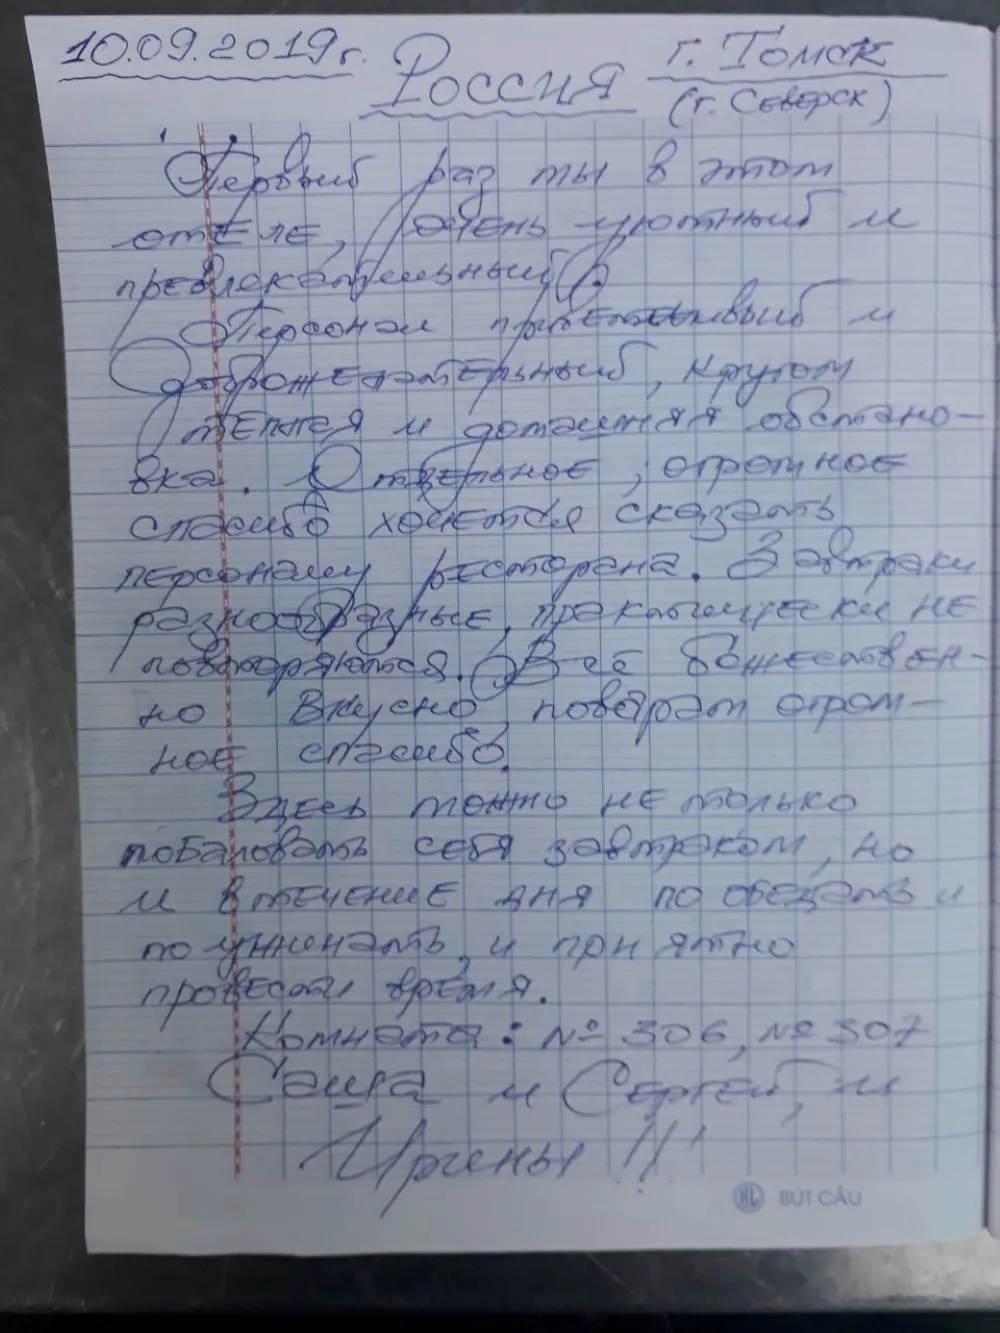 10.09.2019г. Россия г. Томск
(г. Северск)
Первый раз мы в этом
отеле, очень уютный и
превлекательный.
Персонал приветливый и
доброжелательный, кругом
тёплая и домашняя обстано-
вка. Отдельное, огромное
спасибо хочется сказать
персоналу ресторана. Завтраки
разнообразные, практически не
повторяются. Всё божествен-
но вкусно, поварам огром-
ное спасибо.
Здесь можно не только
побаловать себя завтраком, но
и втечение дня по обедать и
по ужинать, и приятно
провести время.
Комната: № 306, № 307
Саша и Сергей, и
Ирины !!!
BÚT CẦU